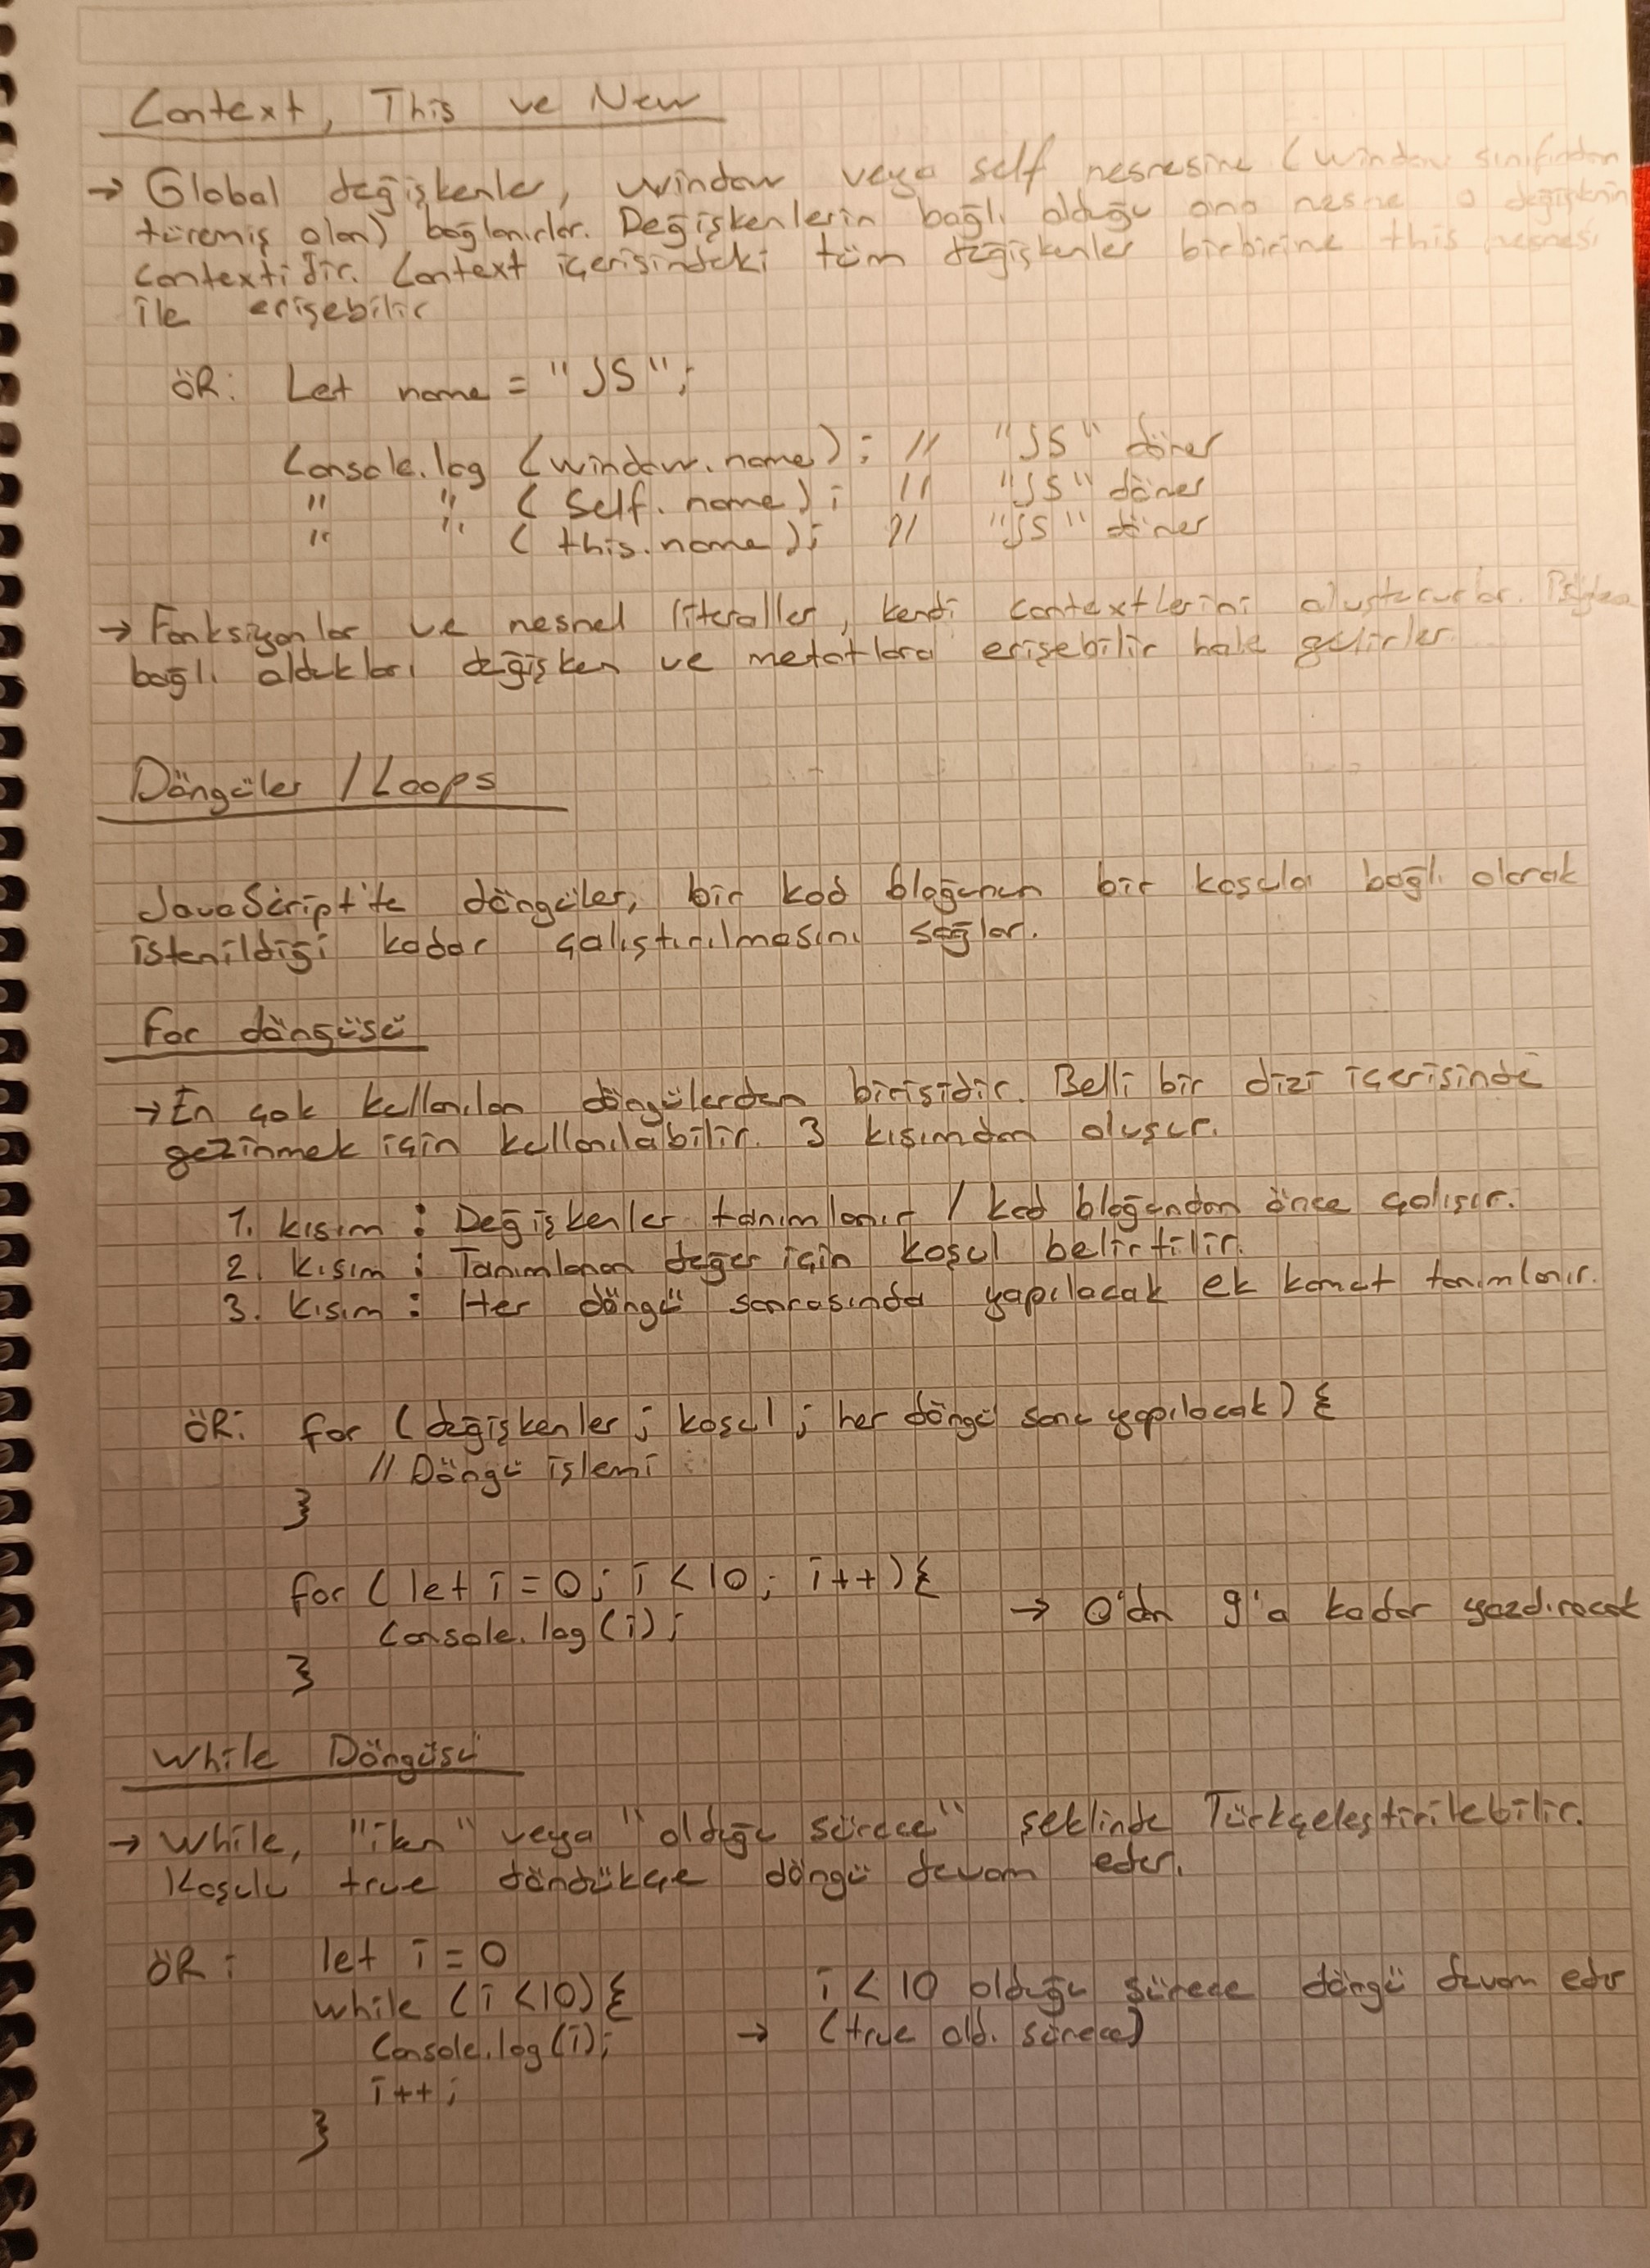 Context, This ve New
→ Global değişkenler, window veya self nesnesine (window sınıfından
türemiş olan) bağlanırlar. Değişkenlerin bağlı olduğu ana nesne o değişkenin
contextidir. Context içerisindeki tüm değişkenler birbirine this nesnesi
ile erişebilir
ÖR: Let name = "JS";
Console.log (window.name); // "JS" döner
" " (Self.name); // "JS" döner
" " (this.name); // "JS" döner
→ Fonksiyonlar ve nesnel literaller, kendi contextlerini oluştururlar. Böylece
bağlı oldukları değişken ve metotlara erişebilir hale gelirler.
Döngüler / Loops
JavaScript'te döngüler, bir kod bloğunun bir koşula bağlı olarak
istenildiği kadar çalıştırılmasını sağlar.
For döngüsü
→ En çok kullanılan döngülerden birisidir. Belli bir dizi içerisinde
gezinmek için kullanılabilir. 3 kısımdan oluşur.
1. kısım : Değişkenler tanımlanır / kod bloğundan önce çalışır.
2. kısım : Tanımlanan değer için koşul belirtilir.
3. kısım : Her döngü sonrasında yapılacak ek komut tanımlanır.
ÖR: for (değişkenler ; koşul ; her döngü sonu yapılacak) {
// Döngü işlemi
}
for ( let i = 0; i < 10; i++){
Console.log(i); → 0'dan 9'a kadar yazdıracak
}
While Döngüsü
→ While, "iken" veya "olduğu sürece" şeklinde Türkçeleştirilebilir.
Koşulu true döndükçe döngü devam eder.
ÖR : let i = 0
while (i < 10) { i < 10 olduğu sürece döngü devam eder
Console.log(i); → (true old. sürece)
i++ ;
}